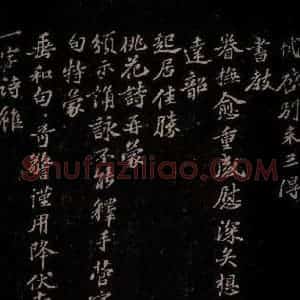 启别来三得
書教
眷撫愈重感慰深矣想
達韶
起居佳勝
桃花詩再蒙
頒示誦詠不能釋手菅
句特蒙
垂和句奇警謹用降伏
一字詩雖
Shufaziliao.com